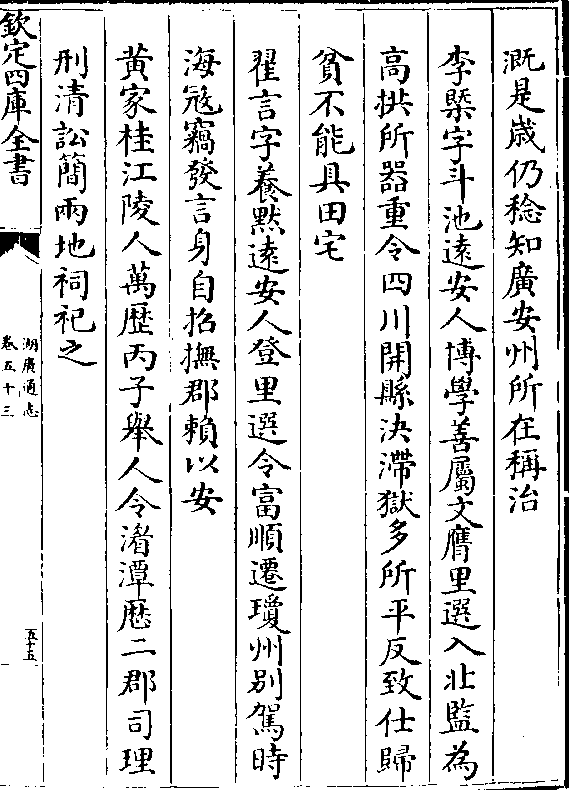 溉是歲仍稔知廣安州所在稱治
李槩字斗池遠安人博學善屬文膺里選入北監為
高拱所器重令四川開縣決滯獄多所平反致仕歸
貧不能具田宅
翟言字養默遠安人登里選令富順遷瓊州别駕時
海冦竊發言身自招撫郡賴以安
黄家桂江陵人萬歴丙子舉人令湻潭歴二郡司理
刑清訟簡兩地祠祀之
欽定四庫全書
湖廣通志
卷五十三
五十五